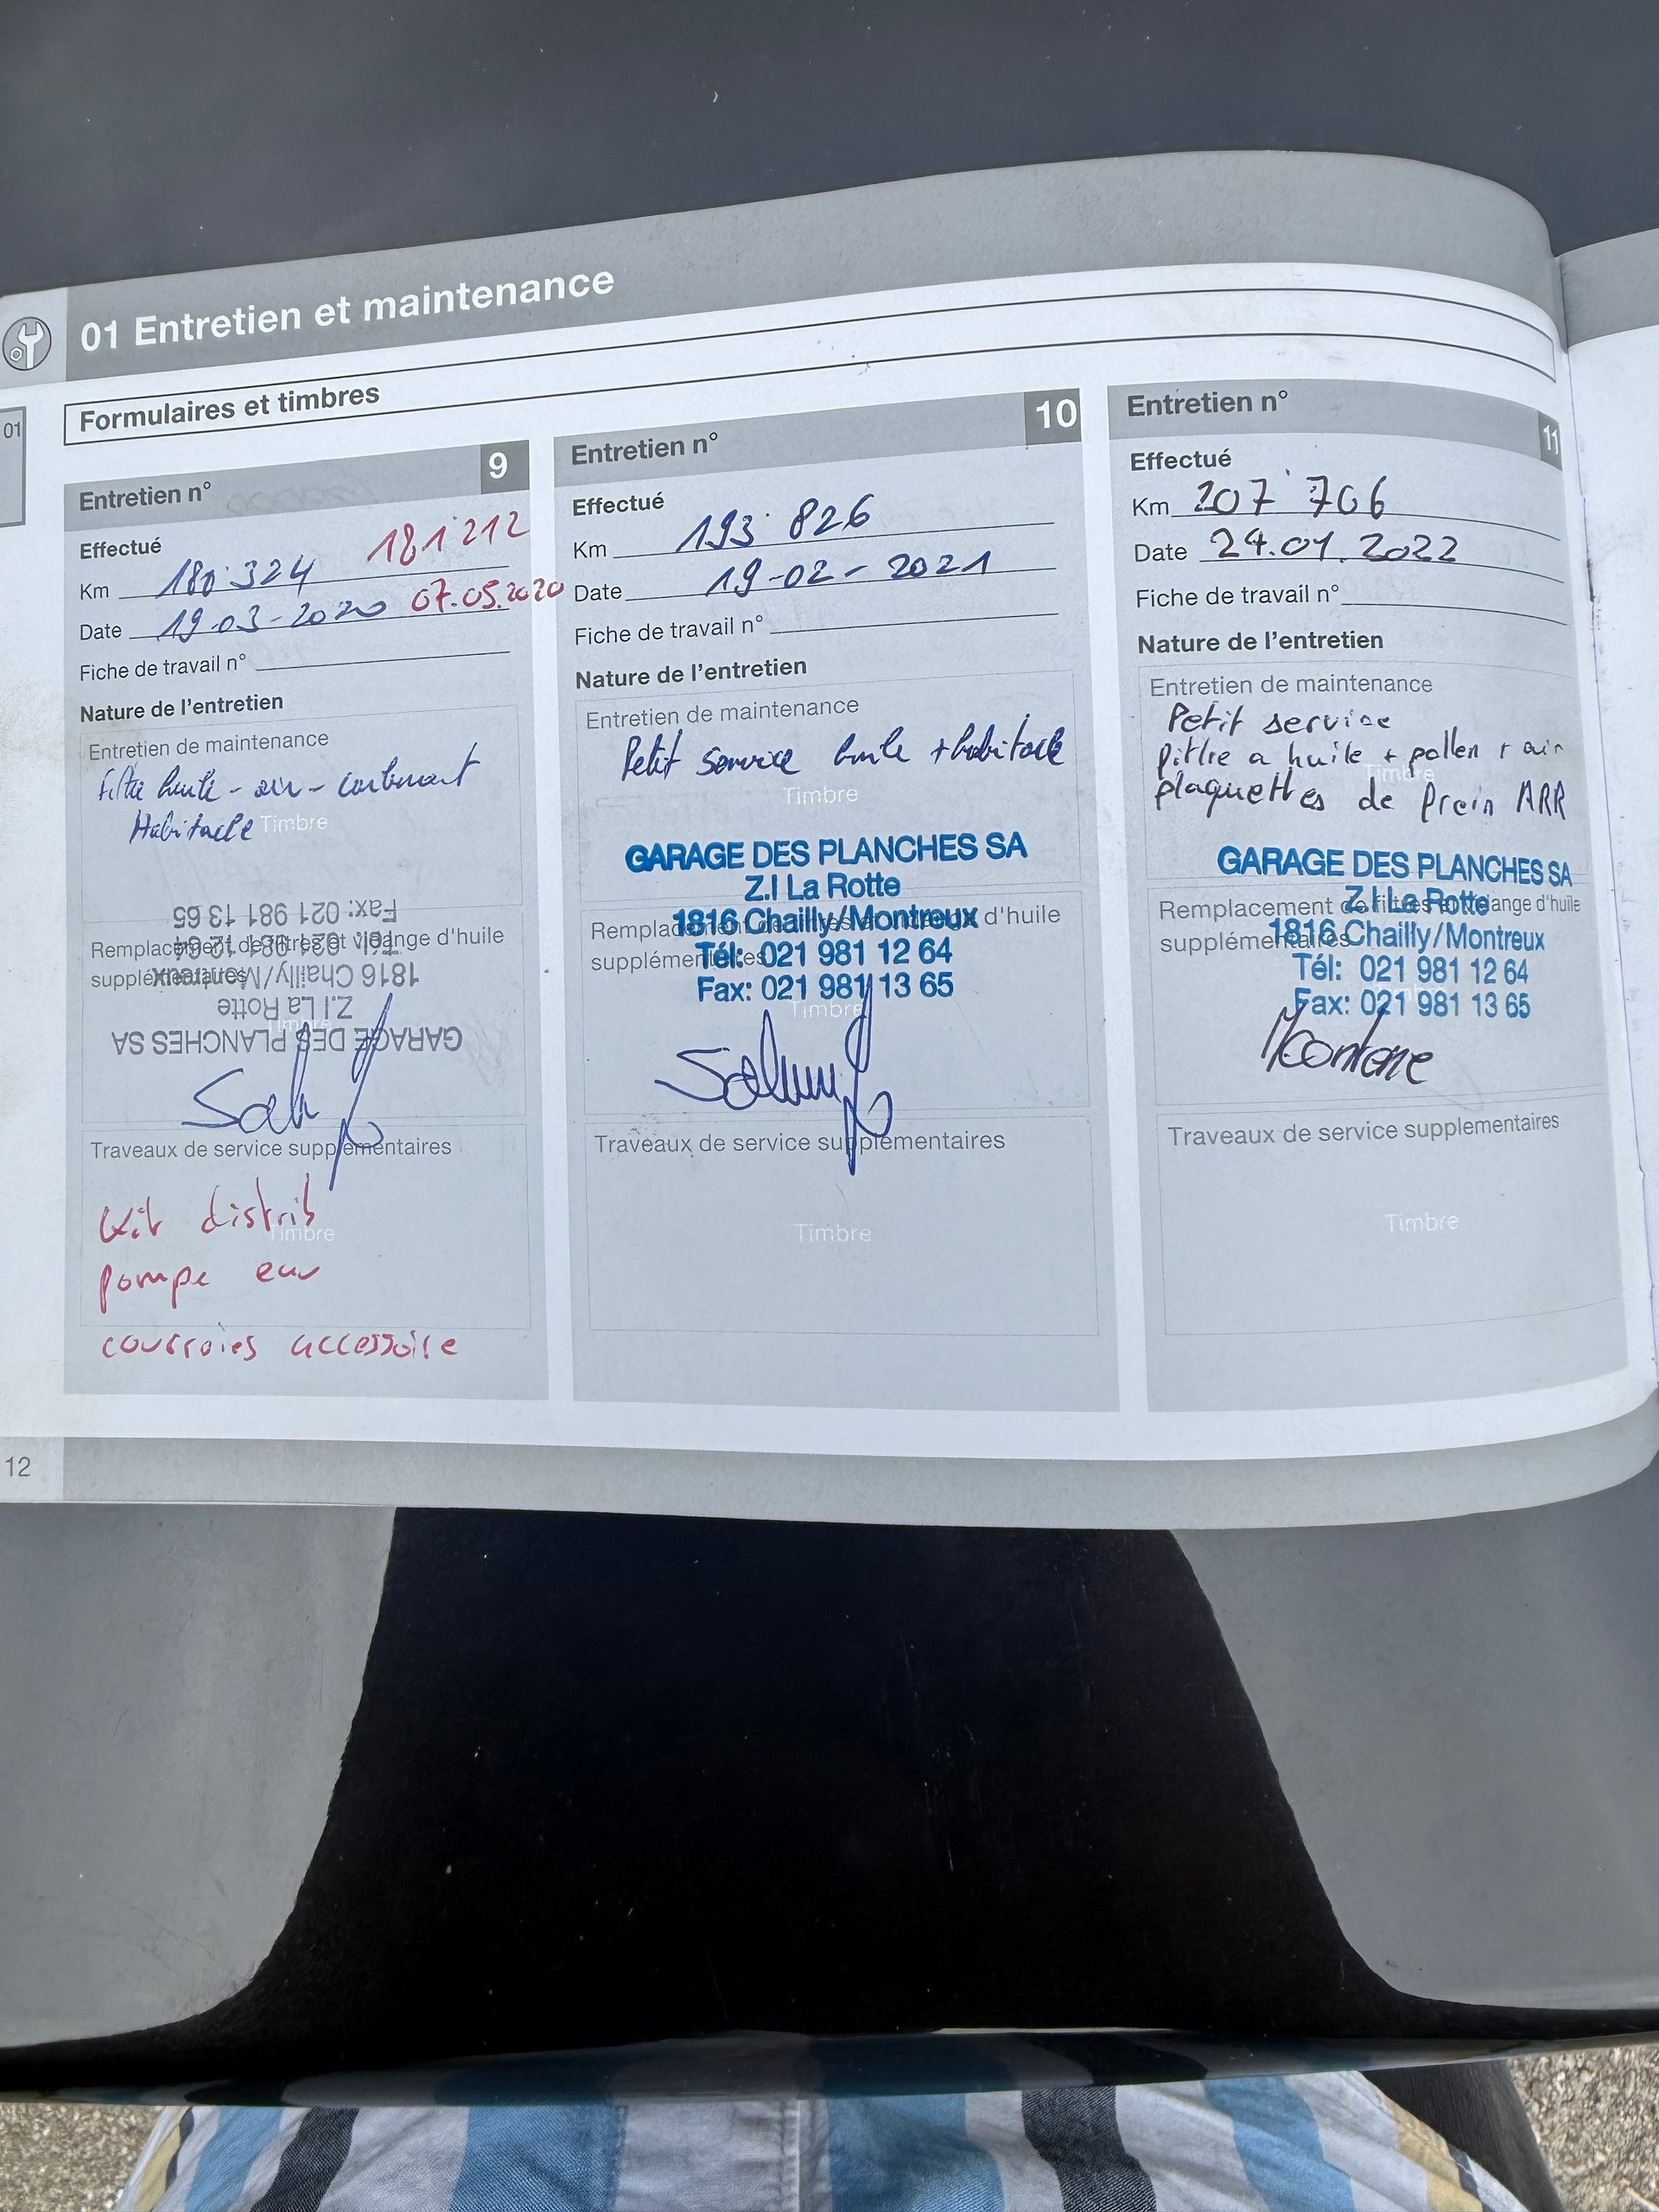 01 Entretien et maintenance
01
Formulaires et timbres
Entretien n° 9
Effectué
181'212
Km 180'324
Date 19-03-2020 07.05.2020
Fiche de travail n°
Nature de l'entretien
Entretien de maintenance
Filtre huile - air - carburant
Habitacle Timbre
Fax: 021 981 13 65
Tél: 021 981 12 64
1816 Chailly/Montreux
Z.I La Rotte
GARAGE DES PLANCHES SA
Remplacement de filtres et vidange d'huile
supplémentaires
Timbre
Traveaux de service supplementaires
Kit distrib
Timbre
pompe eau
courroies accessoire
Entretien n° 10
Effectué
Km 193'826
Date 19-02-2021
Fiche de travail n°
Nature de l'entretien
Entretien de maintenance
Petit service huile + habitacle
Timbre
GARAGE DES PLANCHES SA
Z.I La Rotte
1816 Chailly/Montreux
Tél: 021 981 12 64
Fax: 021 981 13 65
Remplacement de filtres et vidange d'huile
supplémentaires
Timbre
Traveaux de service supplementaires
Timbre
Entretien n° 11
Effectué
Km 207'706
Date 24.01.2022
Fiche de travail n°
Nature de l'entretien
Entretien de maintenance
Petit service
filtre a huile + pollen + air
Timbre
plaquettes de frein ARR
GARAGE DES PLANCHES SA
Z.I La Rotte
1816 Chailly/Montreux
Tél: 021 981 12 64
Fax: 021 981 13 65
Remplacement de filtres et vidange d'huile
supplémentaires
Traveaux de service supplementaires
Timbre
12